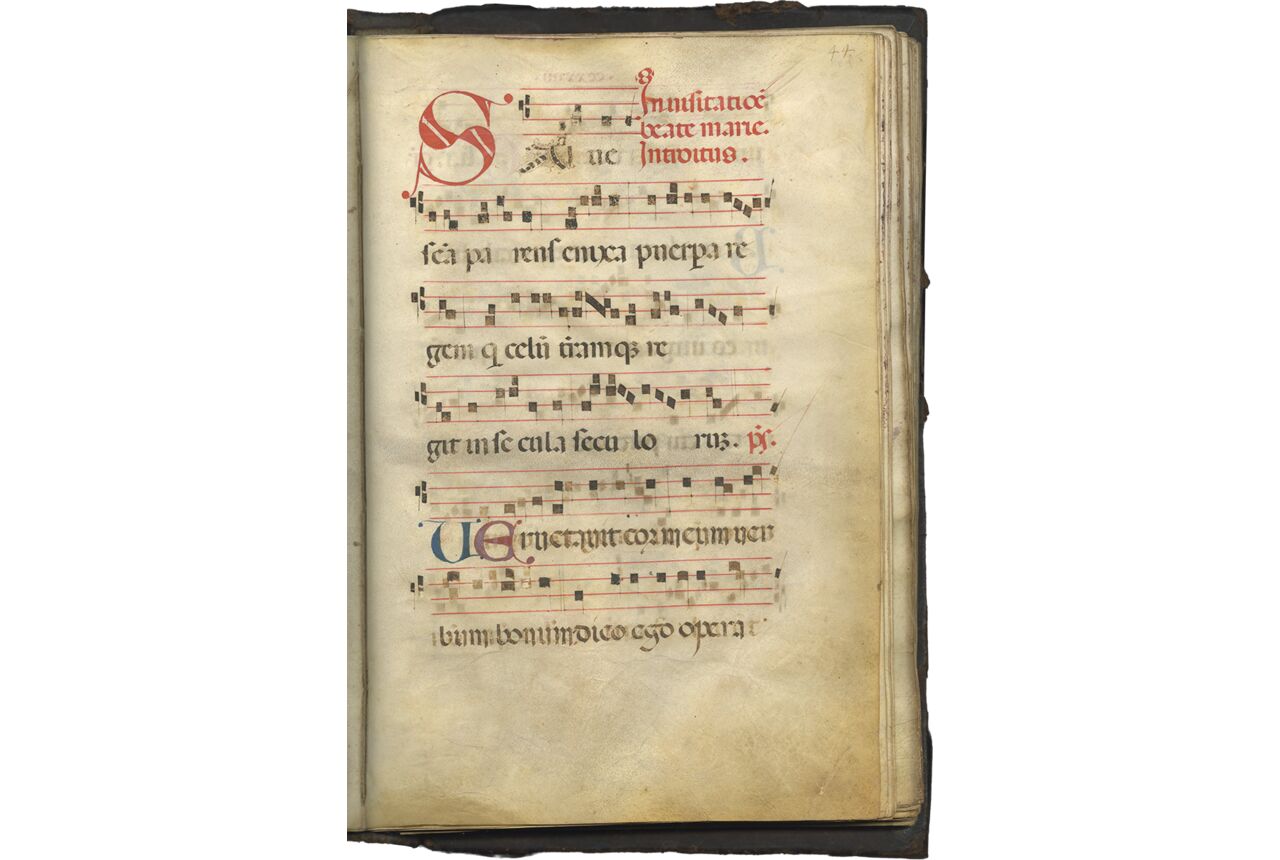 44
In uisitatioē
beate marie.
Introitus.
S Alue
sc̄a pa rens enixa puerpa re
gem q̄ celū t̄ram qꝫ re
git in se cula secu lo ruꝫ. ps.
UE ructauit cor meum uer
bum bonum dico ego opera